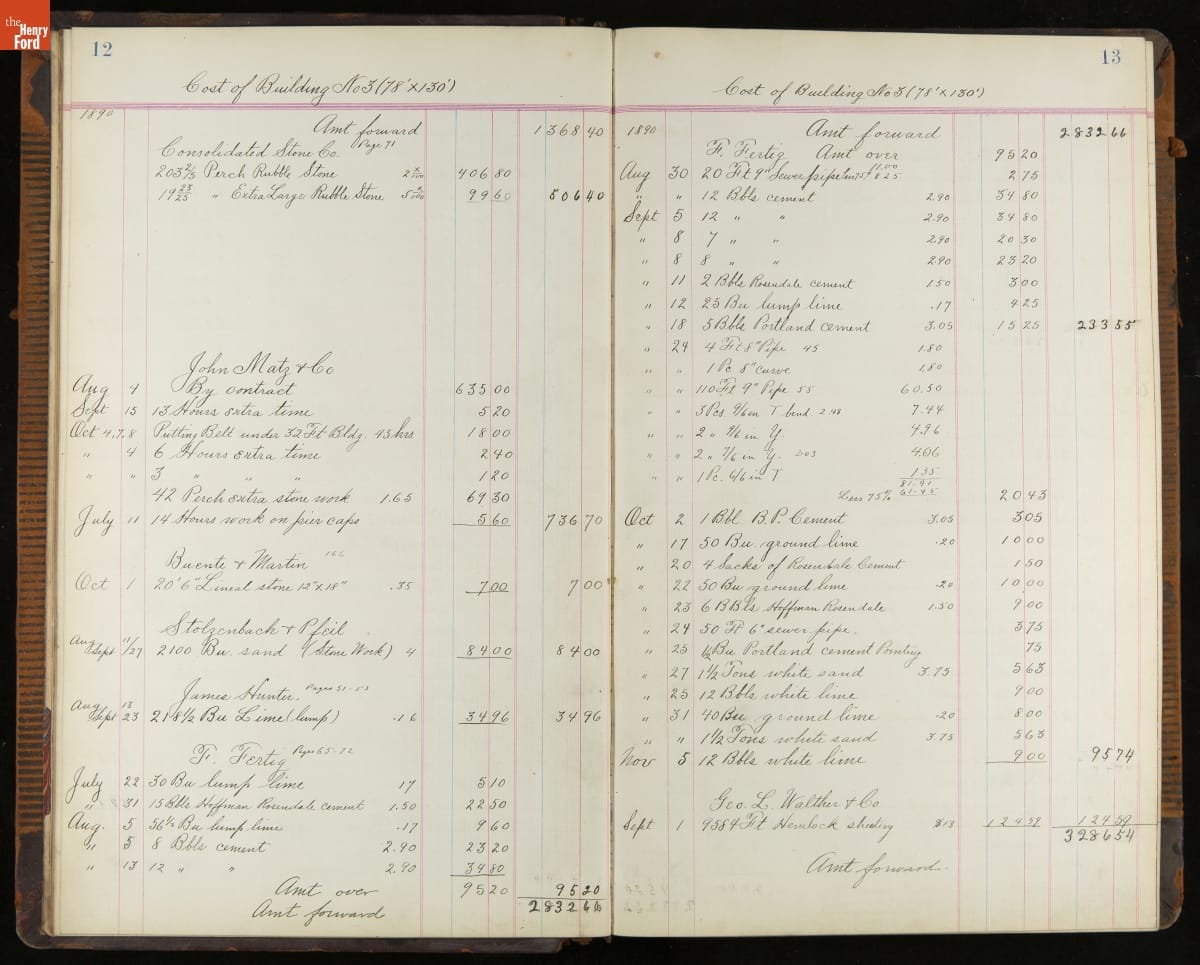 the
Henry
Ford
12
Cost of Building No 3 (78' x 130')
1890
Amt forward 1368 40
Page 71
Consolidated Stone Co.
203 2/5 Perch Rubble Stone 406 80
19 23/25 " Extra Large Rubble Stone 99 60 506 40
John Matz & Co
Aug 4 By contract 635 00
Sept 15 13 Hours extra time 5 20
Oct 4,7,8 Putting Belt under 32 Ft Bldg. 45 hrs 18 00
" 4 6 Hours extra time 2 40
" " 3 " " " 1 20
42 Perch extra stone work 1.65 69 30
July 11 14 Hours work on pier caps 5 60 736 70
Buente & Martin 166
Oct 1 20' 6" Lineal stone 12"x18" .35 7 00 7 00
Stolzenbach & Pfeil
Aug 11
Sept 27 2100 Bu. sand (Stone Work) 4 84 00 84 00
James Hunter. Pages 51-53
Aug 13
Sept 23 218 1/2 Bu Lime (lump) .16 34 96 34 96
F. Fertig Pages 65-72
July 22 30 Bu lump lime 17 5 10
" 31 15 Bbls Hoffman Rosendale cement 1.50 22 50
Aug. 5 56 1/2 Bu lump lime .17 9 60
" 5 8 Bbls cement 2.90 23 20
" 13 12 " " 2.90 34 80
Amt over 95 20 95 20
Amt forward 2832 66
13
Cost of Building No 3 (78' x 130')
1890 Amt forward 2832 66
F. Fertig Amt over 95 20
Aug 30 20 Ft 9" Sewer pipe less 75% 11.00 8.25 2 75
" " 12 Bbls cement 2.90 34 80
Sept 5 12 " " 2.90 34 80
" 8 7 " " 2.90 20 30
" 8 8 " " 2.90 23 20
" 11 2 Bbls Rosendale cement 1.50 3 00
" 12 25 Bu lump lime .17 4 25
" 18 5 Bbls Portland cement 3.05 15 25 233 55
" 24 4 Ft 8" Pipe 45 1.80
" " 1 Pc 8" curve 1.80
" " 110 Ft 9" Pipe 55 60.50
" " 3 Pcs. 9/6 in T bend 2.48 7.44
" " 2 " 9/6 in Y. 4.96
" " 2 " 7/6 in Y. 2.03 4.06
" " 1 Pc. 6/6 in T 1.35
81.91
Less 75% 61.45 20 43
Oct 2 1 Bbl. B.P. Cement 3.05 3 05
" 17 50 Bu. ground lime .20 10 00
" 20 4 Sacks of Rosendale Cement 1 50
" 22 50 Bu ground lime .20 10 00
" 23 6 BBls Hoffman Rosendale 1.50 9 00
" 24 50 Ft 6" sewer pipe. 3 75
" 25 Bu Portland cement Pointing 75
" 27 1 1/2 Tons white sand 3.75 5 63
" 25 12 Bbls white lime 9 00
" 31 40 Bu ground lime .20 8 00
" " 1 1/2 Tons white sand 3.75 5 63
Nov 5 12 Bbls white lime 9 00 95 74
Geo. L. Walther & Co
Sept 1 9584 Ft Hemlock sheeting $13 124 59 124 59
3286 54
Amt forward.